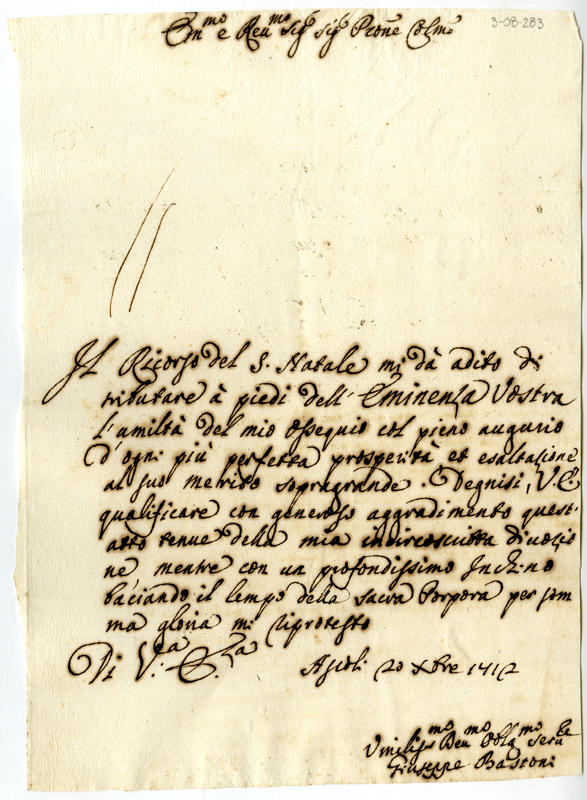 3-08-283
Em.mo e Reu.mo Sig.r Sig.r Prone Colmo
Il Ricorso del S. Natale mi dà adito di
tributare à piedi dell' Eminenza Vostra
l'umiltà del mio ossequio col pieno augurio
d'ogni più perfetta prosperità et esaltazione
al suo merito sopragrande. Degnisi, V. E.
qualificare con generoso aggradimento quest'
atto tenue della mia incircoscritta diuozio
ne mentre con un profondissimo Inchino
baciando il lempo della sacra Porpora per som
ma gloria mi riprotesto
Di V.ra E.za
Ascoli 20 Xbre 1712
Vmiliss.mo Deu.mo Obblg.mo Seru.re
Giuseppe Bastoni